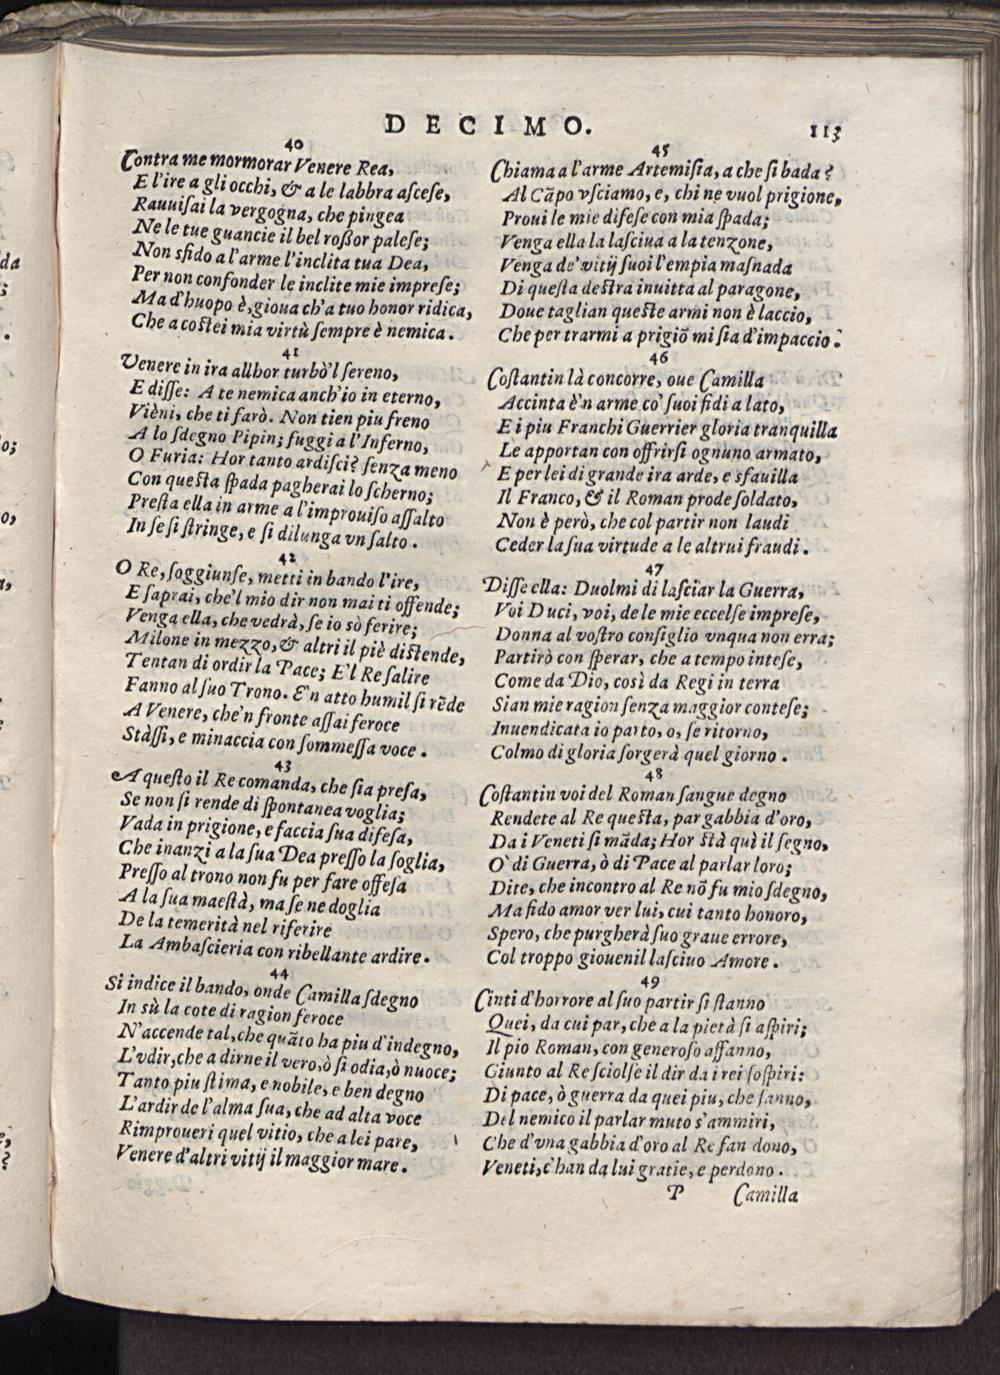 DECIMO.
113
40
Contra me mormorar Venere Rea,
E l'ire a gli occhi, & a le labbra aſceſe,
Rauuiſai la vergogna, che pingea
Ne le tue guancie il bel roßor paleſe;
Non sfido a l'arme l'inclita tua Dea,
Per non confonder le inclite mie impreſe;
Ma d'huopo è, gioua ch'a tuo honor ridica,
Che a coſtei mia virtù ſempre è nemica.
41
Venere in ira allhor turbò'l ſereno,
E diſſe: A te nemica anch'io in eterno,
Vièni, che ti farò. Non tien piu freno
A lo ſdegno Pipin; fuggi a l'Inferno,
O Furia: Hor tanto ardiſci? ſenza meno
Con queſta ſpada pagherai lo ſcherno;
Preſta ella in arme a l'improuiſo aſſalto
In ſe ſi ſtringe, e ſi dilunga vn ſalto.
42
O Re, ſoggiunſe, metti in bando l'ire,
E ſaprai, che'l mio dir non mai ti offende;
Venga ella, che vedrà, ſe io sò ferire;
Milone in mezzo, & altri il piè diſtende,
Tentan di ordir la Pace; E'l Re ſalire
Fanno al ſuo Trono. E'n atto humil ſi rēde
A Venere, che'n fronte aſſai feroce
Stàſſi, e minaccia con ſommeſſa voce.
43
A queſto il Re comanda, che ſia preſa,
Se non ſi rende di ſpontanea voglia;
Vada in prigione, e faccia ſua difeſa,
Che inanzi a la ſua Dea preſſo la ſoglia,
Preſſo al trono non fu per fare offeſa
A la ſua maeſtà, ma ſe ne doglia
De la temerità nel riferire
La Ambaſcieria con ribellante ardire.
44
Si indice il bando, onde Camilla ſdegno
In sù la cote di ragion feroce
N'accende tal, che quāto ha piu d'indegno,
L'vdir, che a dirne il vero, ò ſi odia, ò nuoce;
Tanto piu ſtima, e nobile, e ben degno
L'ardir de l'alma ſua, che ad alta voce
Rimproueri quel vitio, che a lei pare,
Venere d'altri vitij il maggior mare.
45
Chiama a l'arme Artemiſia, a che ſi bada?
Al Cāpo vſciamo, e, chi ne vuol prigione,
Proui le mie difeſe con mia ſpada;
Venga ella la laſciua a la tenzone,
Venga de' vitij ſuoi l'empia maſnada
Di queſta deſtra inuitta al paragone,
Doue taglian queſte armi non è laccio,
Che per trarmi a prigiō mi ſia d'impaccio.
46
Coſtantin là concorre, oue Camilla
Accinta è'n arme co' ſuoi fidi a lato,
E i piu Franchi Guerrier gloria tranquilla
Le apportan con offrirſi ognuno armato,
E per lei di grande ira arde, e sfauilla
Il Franco, & il Roman prode ſoldato,
Non è però, che col partir non laudi
Ceder la ſua virtude a le altrui fraudi.
47
Diſſe ella: Duolmi di laſciar la Guerra,
Voi Duci, voi, de le mie eccelſe impreſe,
Donna al voſtro conſiglio vnqua non erra;
Partirò con ſperar, che a tempo inteſe,
Come da Dio, così da Regi in terra
Sian mie ragion ſenza maggior conteſe;
Inuendicata io parto, o, ſe ritorno,
Colmo di gloria ſorgerà quel giorno.
48
Coſtantin voi del Roman ſangue degno
Rendete al Re queſta, par gabbia d'oro,
Da i Veneti ſi māda; Hor ſtà quì il ſegno,
O' di Guerra, ò di Pace al parlar loro;
Dite, che incontro al Re nō fu mio ſdegno,
Ma fido amor ver lui, cui tanto honoro,
Spero, che purgherà ſuo graue errore,
Col troppo giouenil laſciuo Amore.
49
Cinti d'horrore al ſuo partir ſi ſtanno
Quei, da cui par, che a la pietà ſi aſpiri;
Il pio Roman, con generoſo affanno,
Giunto al Re ſciolſe il dir da i rei ſoſpiri:
Di pace, ò guerra da quei piu, che ſanno,
Del nemico il parlar muto s'ammiri,
Che d'vna gabbia d'oro al Re fan dono,
Veneti, c'han da lui gratie, e perdono.
P
Camilla